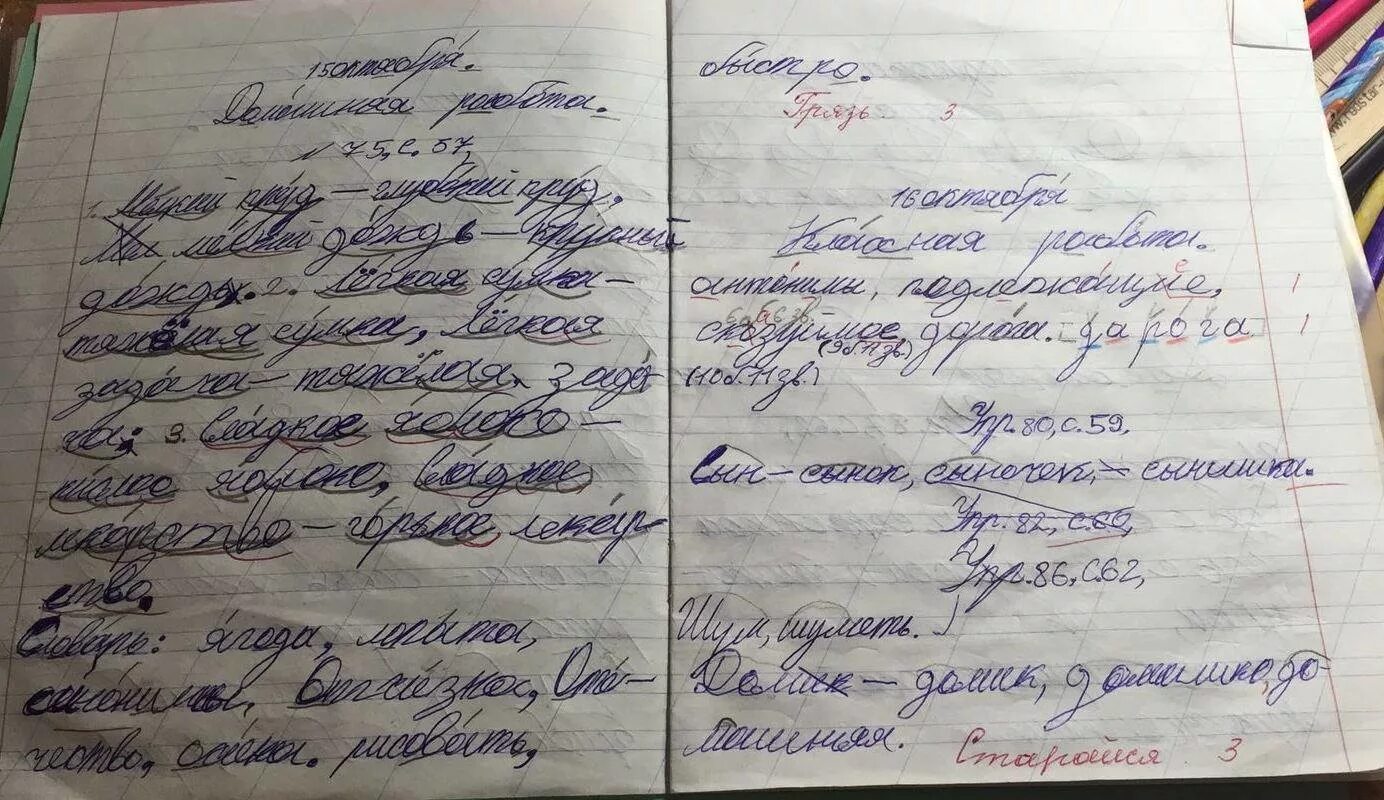 15 октября.
Домашняя работа.
№ 75, с. 57,
1. Мелкий пруд – глубокий пруд.
мелкий дождь – крупный
дождь. 2. Лёгкая сумка –
тяжёлая сумка, лёгкая
задача – тяжёлая зада-
ча. 3. Сладкое яблоко –
кислое яблоко, сладкое
лекарство – горькое лекар-
ство.
Словарь: ягода, лопата,
Отчизна, Оте-
чество, осина. рисовать,
быстро.
Грязь 3
16 октября
Классная работа.
антонимы, подлежащие, 1
сказуимое, дорога. дарога 1
(9б.11зв.)
(10б.11зв.)
Упр. 80, с. 59,
Сын – сынок, сыночек, – сынишка.
Упр. 82, с. 60,
Упр. 86, с. 62,
Шум, шуметь.
Домик – домик, домишко, до-
машняя.
Старайся 3